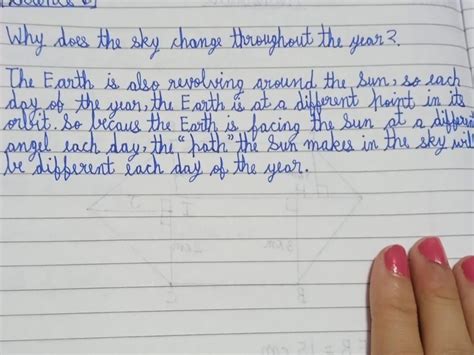 Why does the sky change throughout the year?
The Earth is also revolving around the Sun, so each
day of the year, the Earth is at a different point in its
orbit. So becaus the Earth is facing the Sun at a differen
angel each day, the "path" the Sun makes in the sky will
be different each day of the year.